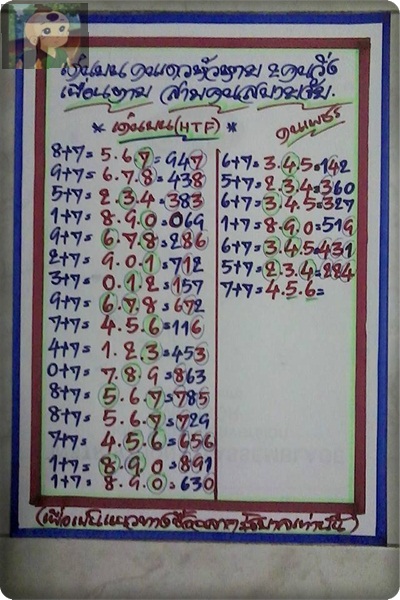 * เด่นบน(HTF) *
8+7= 5.6.7=947
9+7= 6.7.8=438
5+7= 2.3.4=383
1+7= 8.9.0=069
9+7= 6.7.8=286
2+7= 9.0.1=712
3+7= 0.1.2=157
9+7= 6.7.8=672
7+7= 4.5.6=116
4+7= 1.2.3=453
0+7= 7.8.9=863
8+7= 5.6.7=785
8+7= 5.6.7=729
7+7= 4.5.6=656
1+7= 8.9.0=891
1+7= 8.9.0=630
6+7= 3.4.5=142
5+7= 2.3.4=360
6+7= 3.4.5=327
1+7= 8.9.0=519
6+7= 3.4.5=431
5+7= 2.3.4=224
7+7= 4.5.6=
(เพื่อเป็นแนวทางซื้อสลากรัฐบาลเท่านั้น)